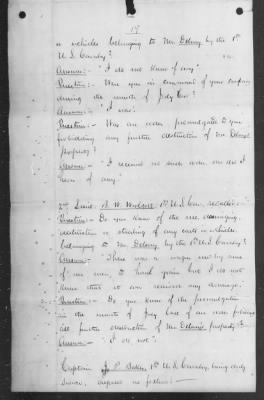 17
vehicles belonging to Mr Delony by the 1st
U.S. Cavalry?
Answer:- "I do not know of any."
Question:- Were you in command of your company
during the month of July last?
Answer:- "I was."
Question:- Was an order promulgated to you
forbidding any further destruction of Mr Delony's
property?
Answer:- "I received no such order, nor did I
hear of any."
2nd Lieut. 1st U.S. Cav. recalled:-
Question:- Do you know of the use, damaging,
destruction or stealing of any carts or vehicles
belonging to Mr Delony by the 1st U.S. Cavalry?
Answer:- "There was a wagon used by some
of our men, to haul grain but I do not
know that it ever received any damage."
Question:- Do you know of the promulgation
in the month of July last of an order forbidding
all further destruction of Mr Delony's property?
Answer:- "I do not."
Captain 1st U.S. Cavalry, being duly
sworn,